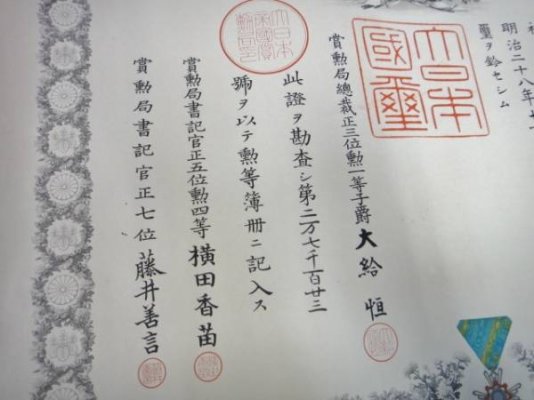 明治二十八年十
璽ヲ鈐セシム
大日本
國璽
賞勲局總裁正三位勲一等子爵大給恒
此證ヲ勘査シ第二万七千百廿三
號ヲ以テ勲等簿冊ニ記入ス
大日本
帝國賞
勲局印
賞勲局書記官正五位勲四等橫田香苗
賞勲局書記官正七位藤井善言